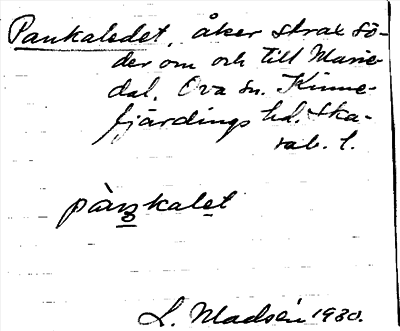 Pankaledet, åker strax sö-
der om och till Marie-
dal. Ova sn. Kinne-
fjärdings hd. Ska-
rab. l.
pàŋkalet
L. Madsén 1930.